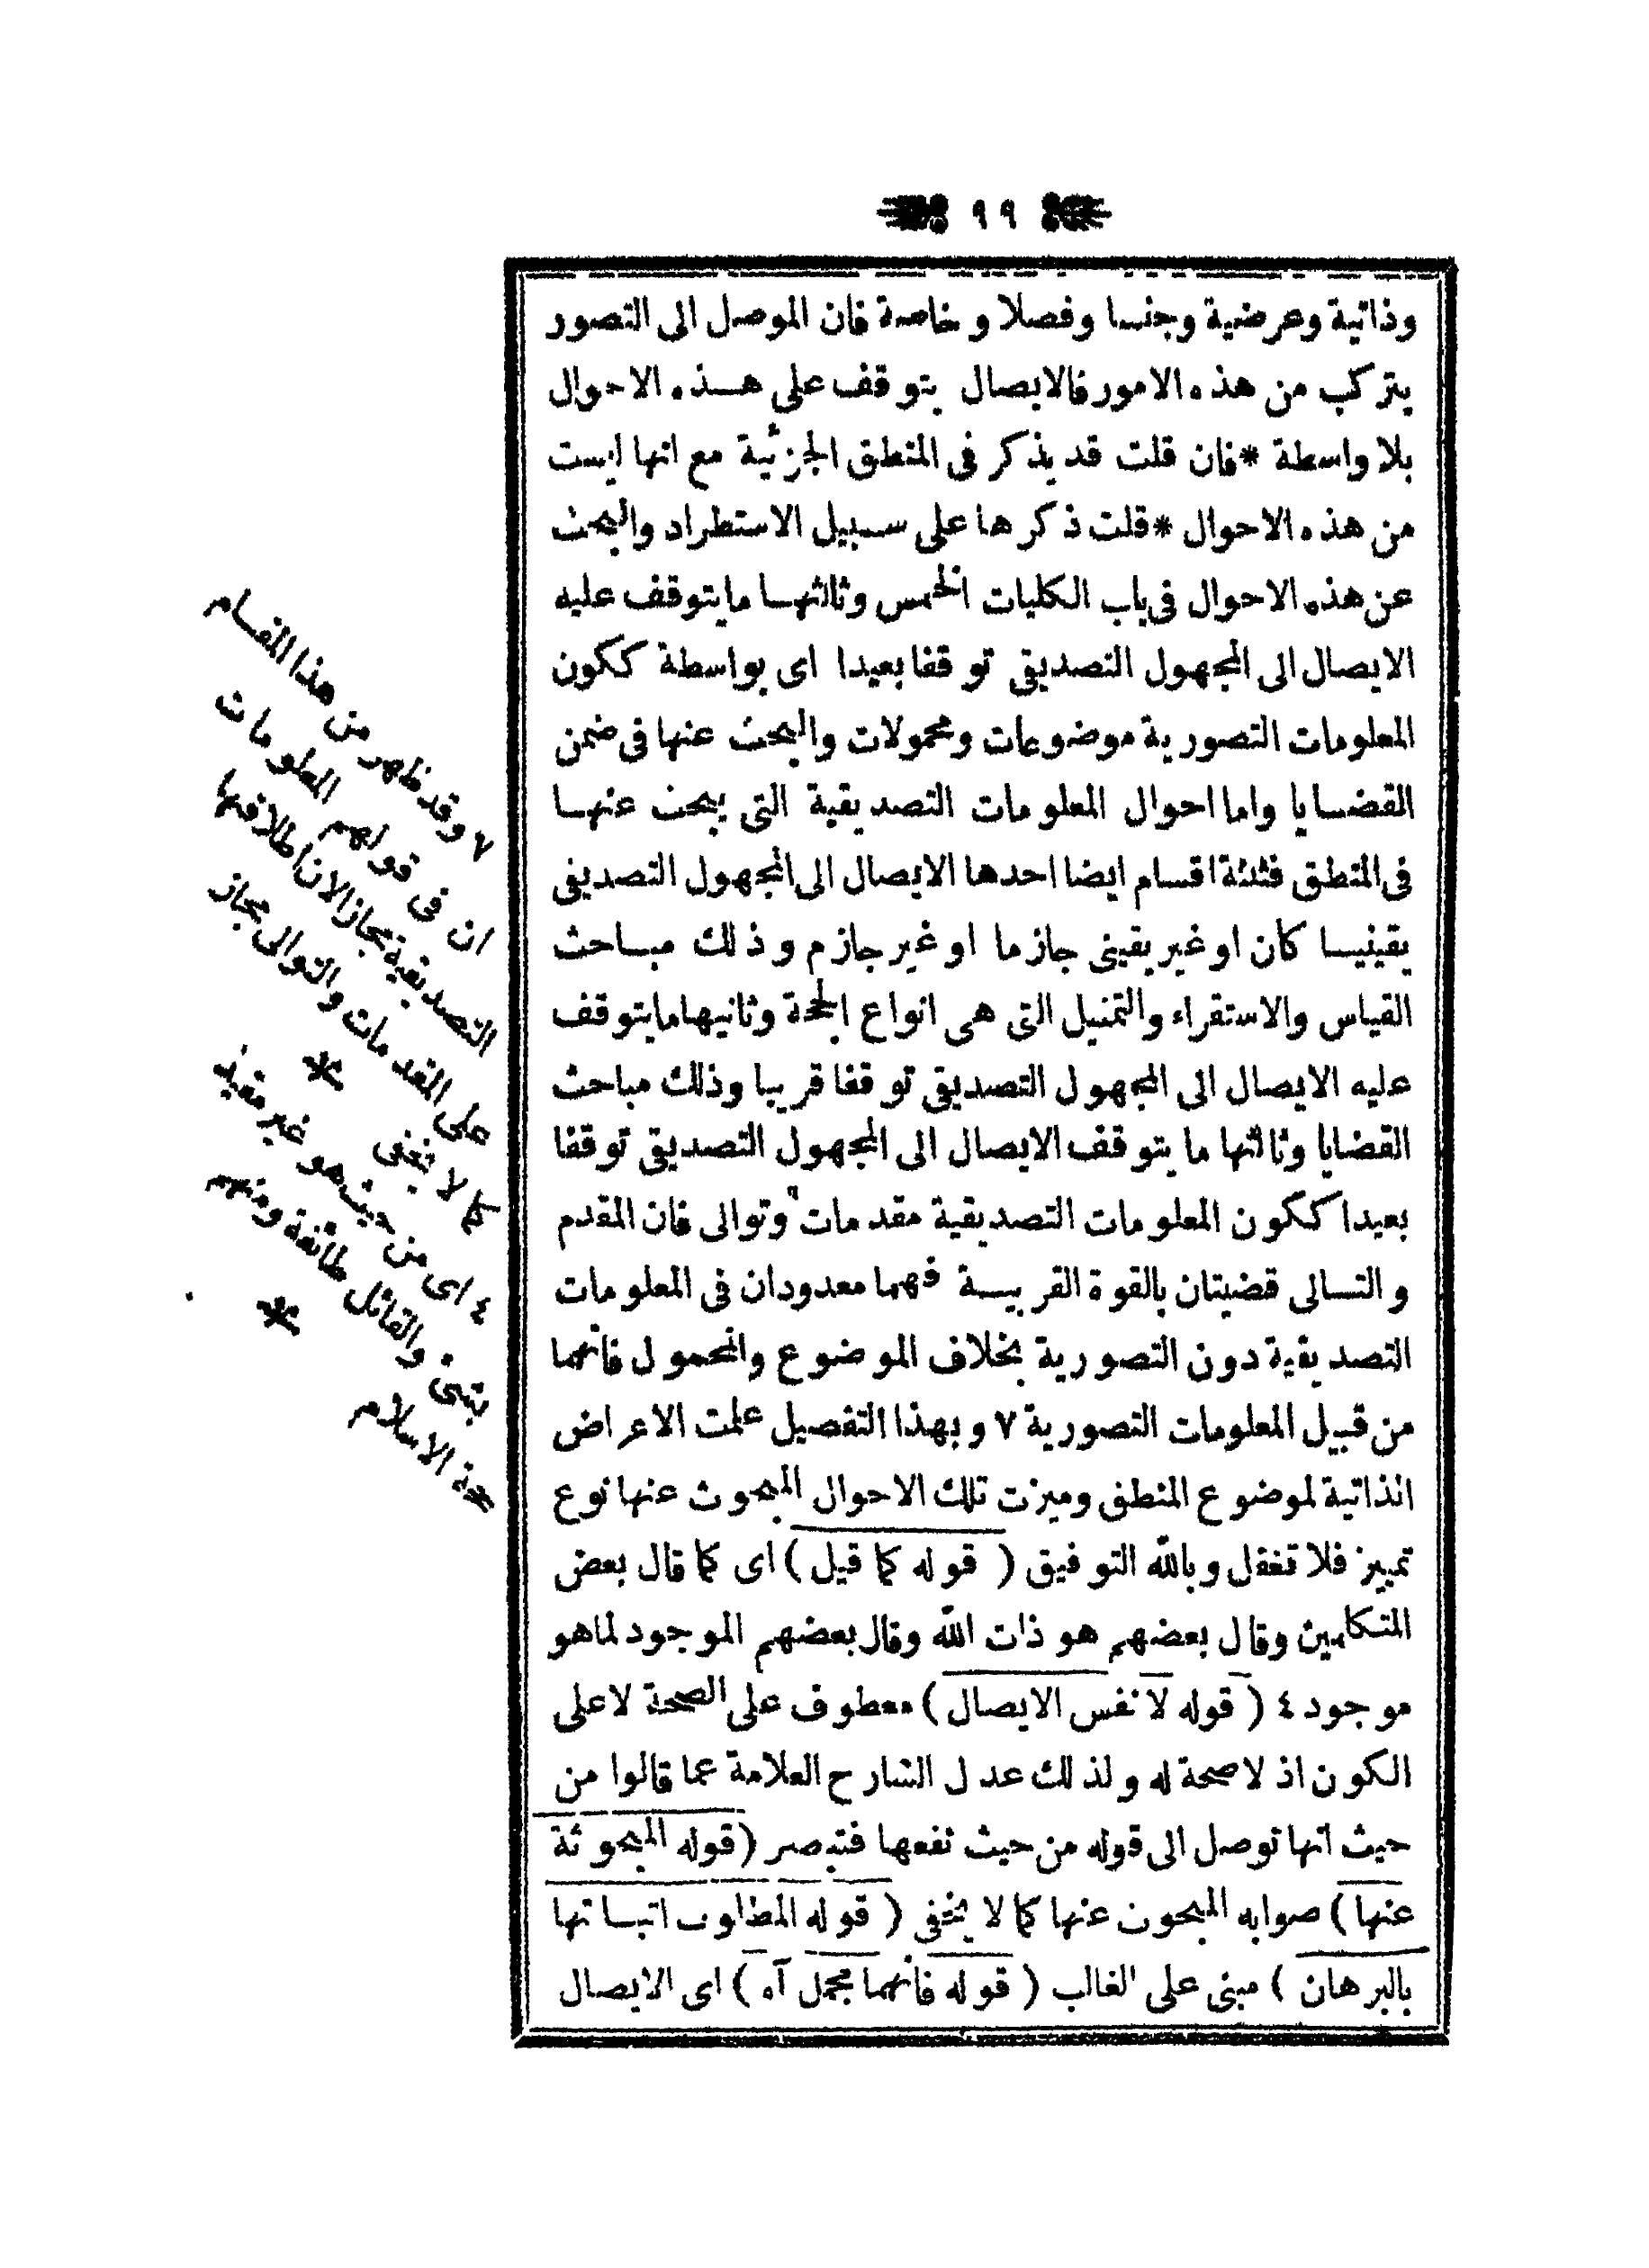 ٩٩
وذاتية وعرضية وجنسا وفصلا و خاصة فان الموصل الى التصور
يتركب من هذه الامور فالايصال يتوقف على هذه الاحوال
بلا واسطة * فان قلت قد يذكر فى المنطق الجزئية مع انها ليست
من هذه الاحوال * قلت ذكرها على سبيل الاستطراد والبحث
عن هذه الاحوال فى باب الكليات الخمس وثالثها ما يتوقف عليه
الايصال الى المجهول التصديقى توقفا بعيدا اى بواسطة ككون
المعلومات التصورية موضوعات ومحمولات والبحث عنها فى ضمن
القضايا واما احوال المعلومات التصديقية التى يبحث عنها
فى المنطق فثلثة اقسام ايضا احدها الايصال الى المجهول التصديقى
يقينيا كان او غير يقينى جازما او غير جازم وذلك مباحث
القياس والاستقراء والتمثيل التى هى انواع الحجة وثانيها ما يتوقف
عليه الايصال الى المجهول التصديقى توقفا قريبا وذلك مباحث
القضايا وثالثها ما يتوقف الايصال الى المجهول التصديقى توقفا
بعيدا ككون المعلومات التصديقية مقدمات وتوالى فان المقدم
و التالى قضيتان بالقوة القريبة فهما معدودان فى المعلومات
التصديقية دون التصورية بخلاف الموضوع والمحمول فانهما
من قبيل المعلومات التصورية ٧ وبهذا التفصيل علمت الاعراض
الذاتية لموضوع المنطق وميزت تلك الاحوال المبحوث عنها نوع
تمييز فلا تغفل وبالله التوفيق ( قوله كما قيل ) اى كما قال بعض
المتكلمين وقال بعضهم هو ذات الله وقال بعضهم الموجود لماهو
موجود ٤ ( قوله لا نفس الايصال ) معطوف على الصحة لا على
الكون اذ لا صحة له ولذلك عدل الشارح العلامة عما قالوا من
حيث انها توصل الى قوله من حيث نفعها فتبصر (قوله المبحوثة
عنها ) صوابه المبحوث عنها كما لا يخفى ( قوله المطلوب اثباتها
بالبرهان ) مبنى على الغالب ( قوله فانهما مجمل آه ) اى الايصال
٧ وقد ظهر من هذا المقام
ان فى قولهم المعلومات
التصديقية مجاز الان اطلاقها
على المقدمات والتوالى مجاز
كما لا يخفى *
٤ اى من حيث هو غير مقيد
بشئ والقائل طائفة ومنهم
حجة الاسلام *